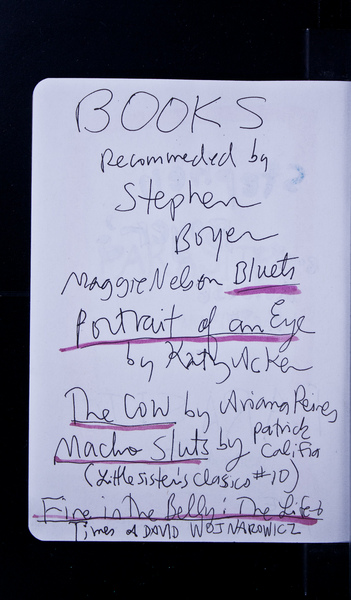 BOOKS
Recommeded by
Stephen
Boyer
Maggie Nelson Bluets
Portrait of an Eye
by Kathy Acker
The Cow by Ariana Reines
Macho Sluts by Patrick Califia
(Little Sister's Clasics #10)
Fire in the Belly: The Life &
Times of DAVID WOJNAROWICZ